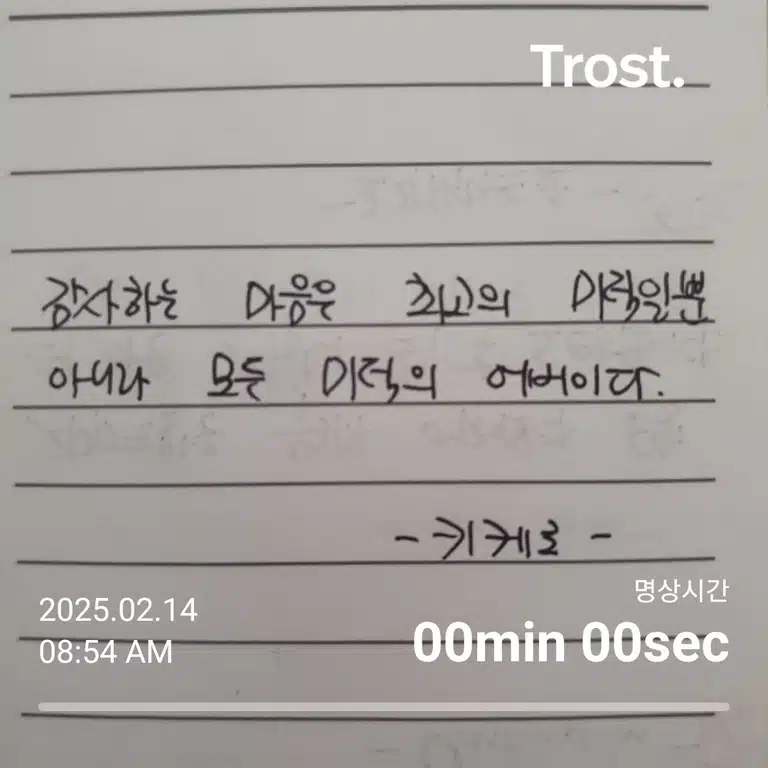 Trost.
감사하는 마음은 최고의 미덕일뿐
아니라 모든 미덕의 어버이다.
- 키케로 -
명상시간
2025.02.14
08:54 AM
00min 00sec